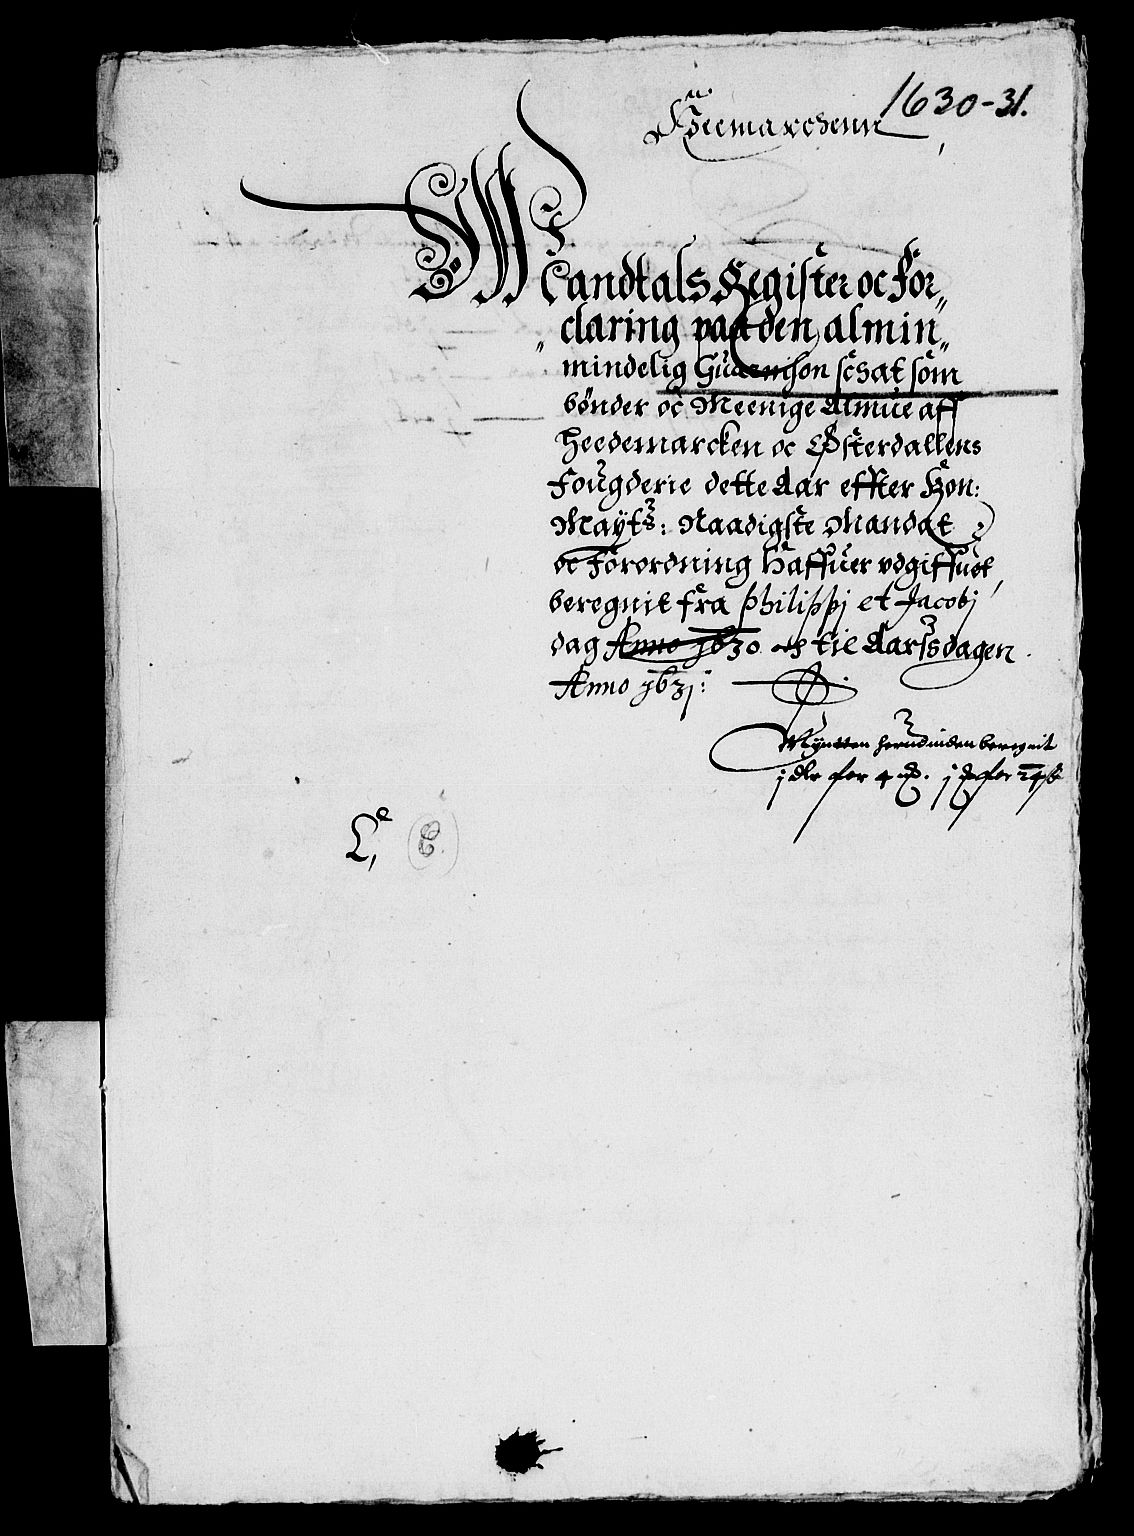 1630-31.
Heemarchenn
Mandtals Register oc For„
„claring paa den almin„
mindelig Guarnison schat som
bönder oc Meenige Almue aff
Heedemarcken oc Østerdallens
Fougderie dette Aar effter Kon:
Maytz: Naadigste Mandat
oc Forordning Haffuer vdgiffuet,
beregnit fra Philippi et Jacobj
dag Anno 1630 och til Aarssdagen
Anno 1631:
Mynten herudinden beregnit
j dlr for 4 j for 24 ß